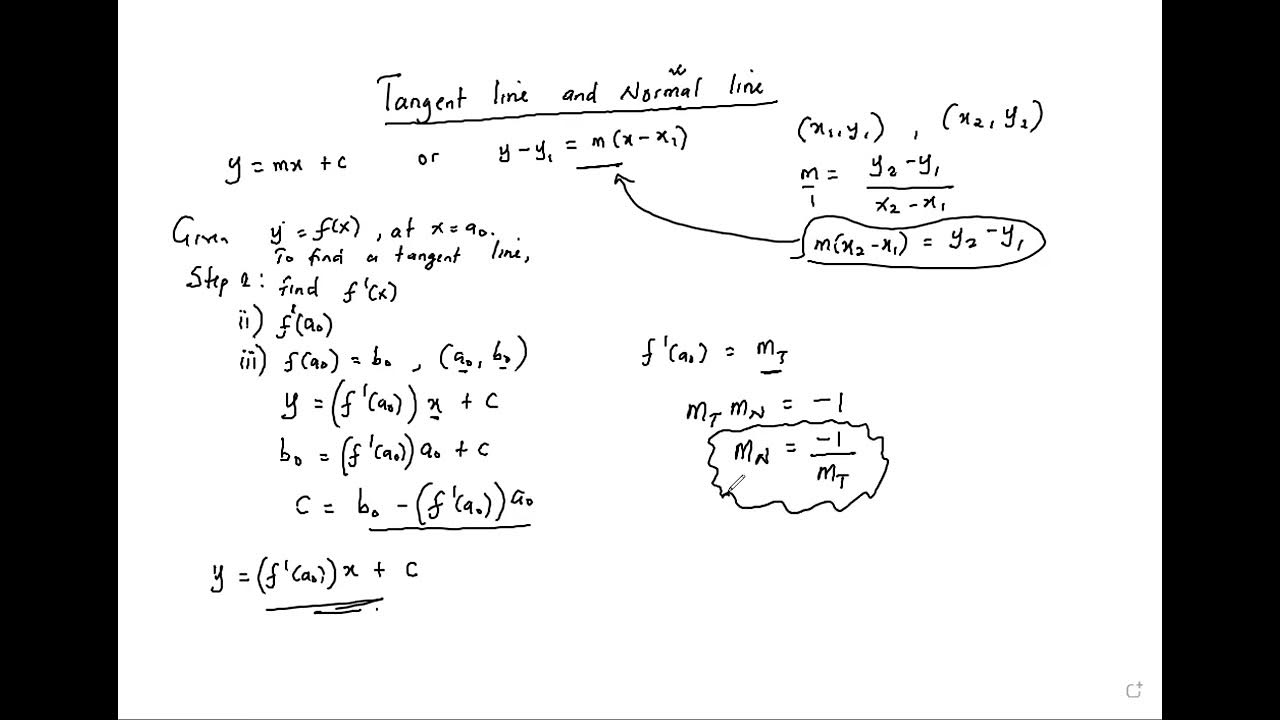 Tangent line and Normal line
y = mx + c or y - y₁ = m(x - x₁)
(x₁, y₁) , (x₂, y₂)
m/1 = (y₂ - y₁)/(x₂ - x₁)
m(x₂ - x₁) = y₂ - y₁
Given y = f(x), at x = a₀.
To find a tangent line,
Step 1: find f'(x)
ii) f'(a₀)
iii) f(a₀) = b₀ , (a₀, b₀)
y = (f'(a₀)) x + c
b₀ = (f'(a₀)) a₀ + c
C = b₀ - (f'(a₀)) a₀
y = (f'(a₀)) x + c
f'(a₀) = m_T
m_T m_N = -1
m_N = -1/m_T